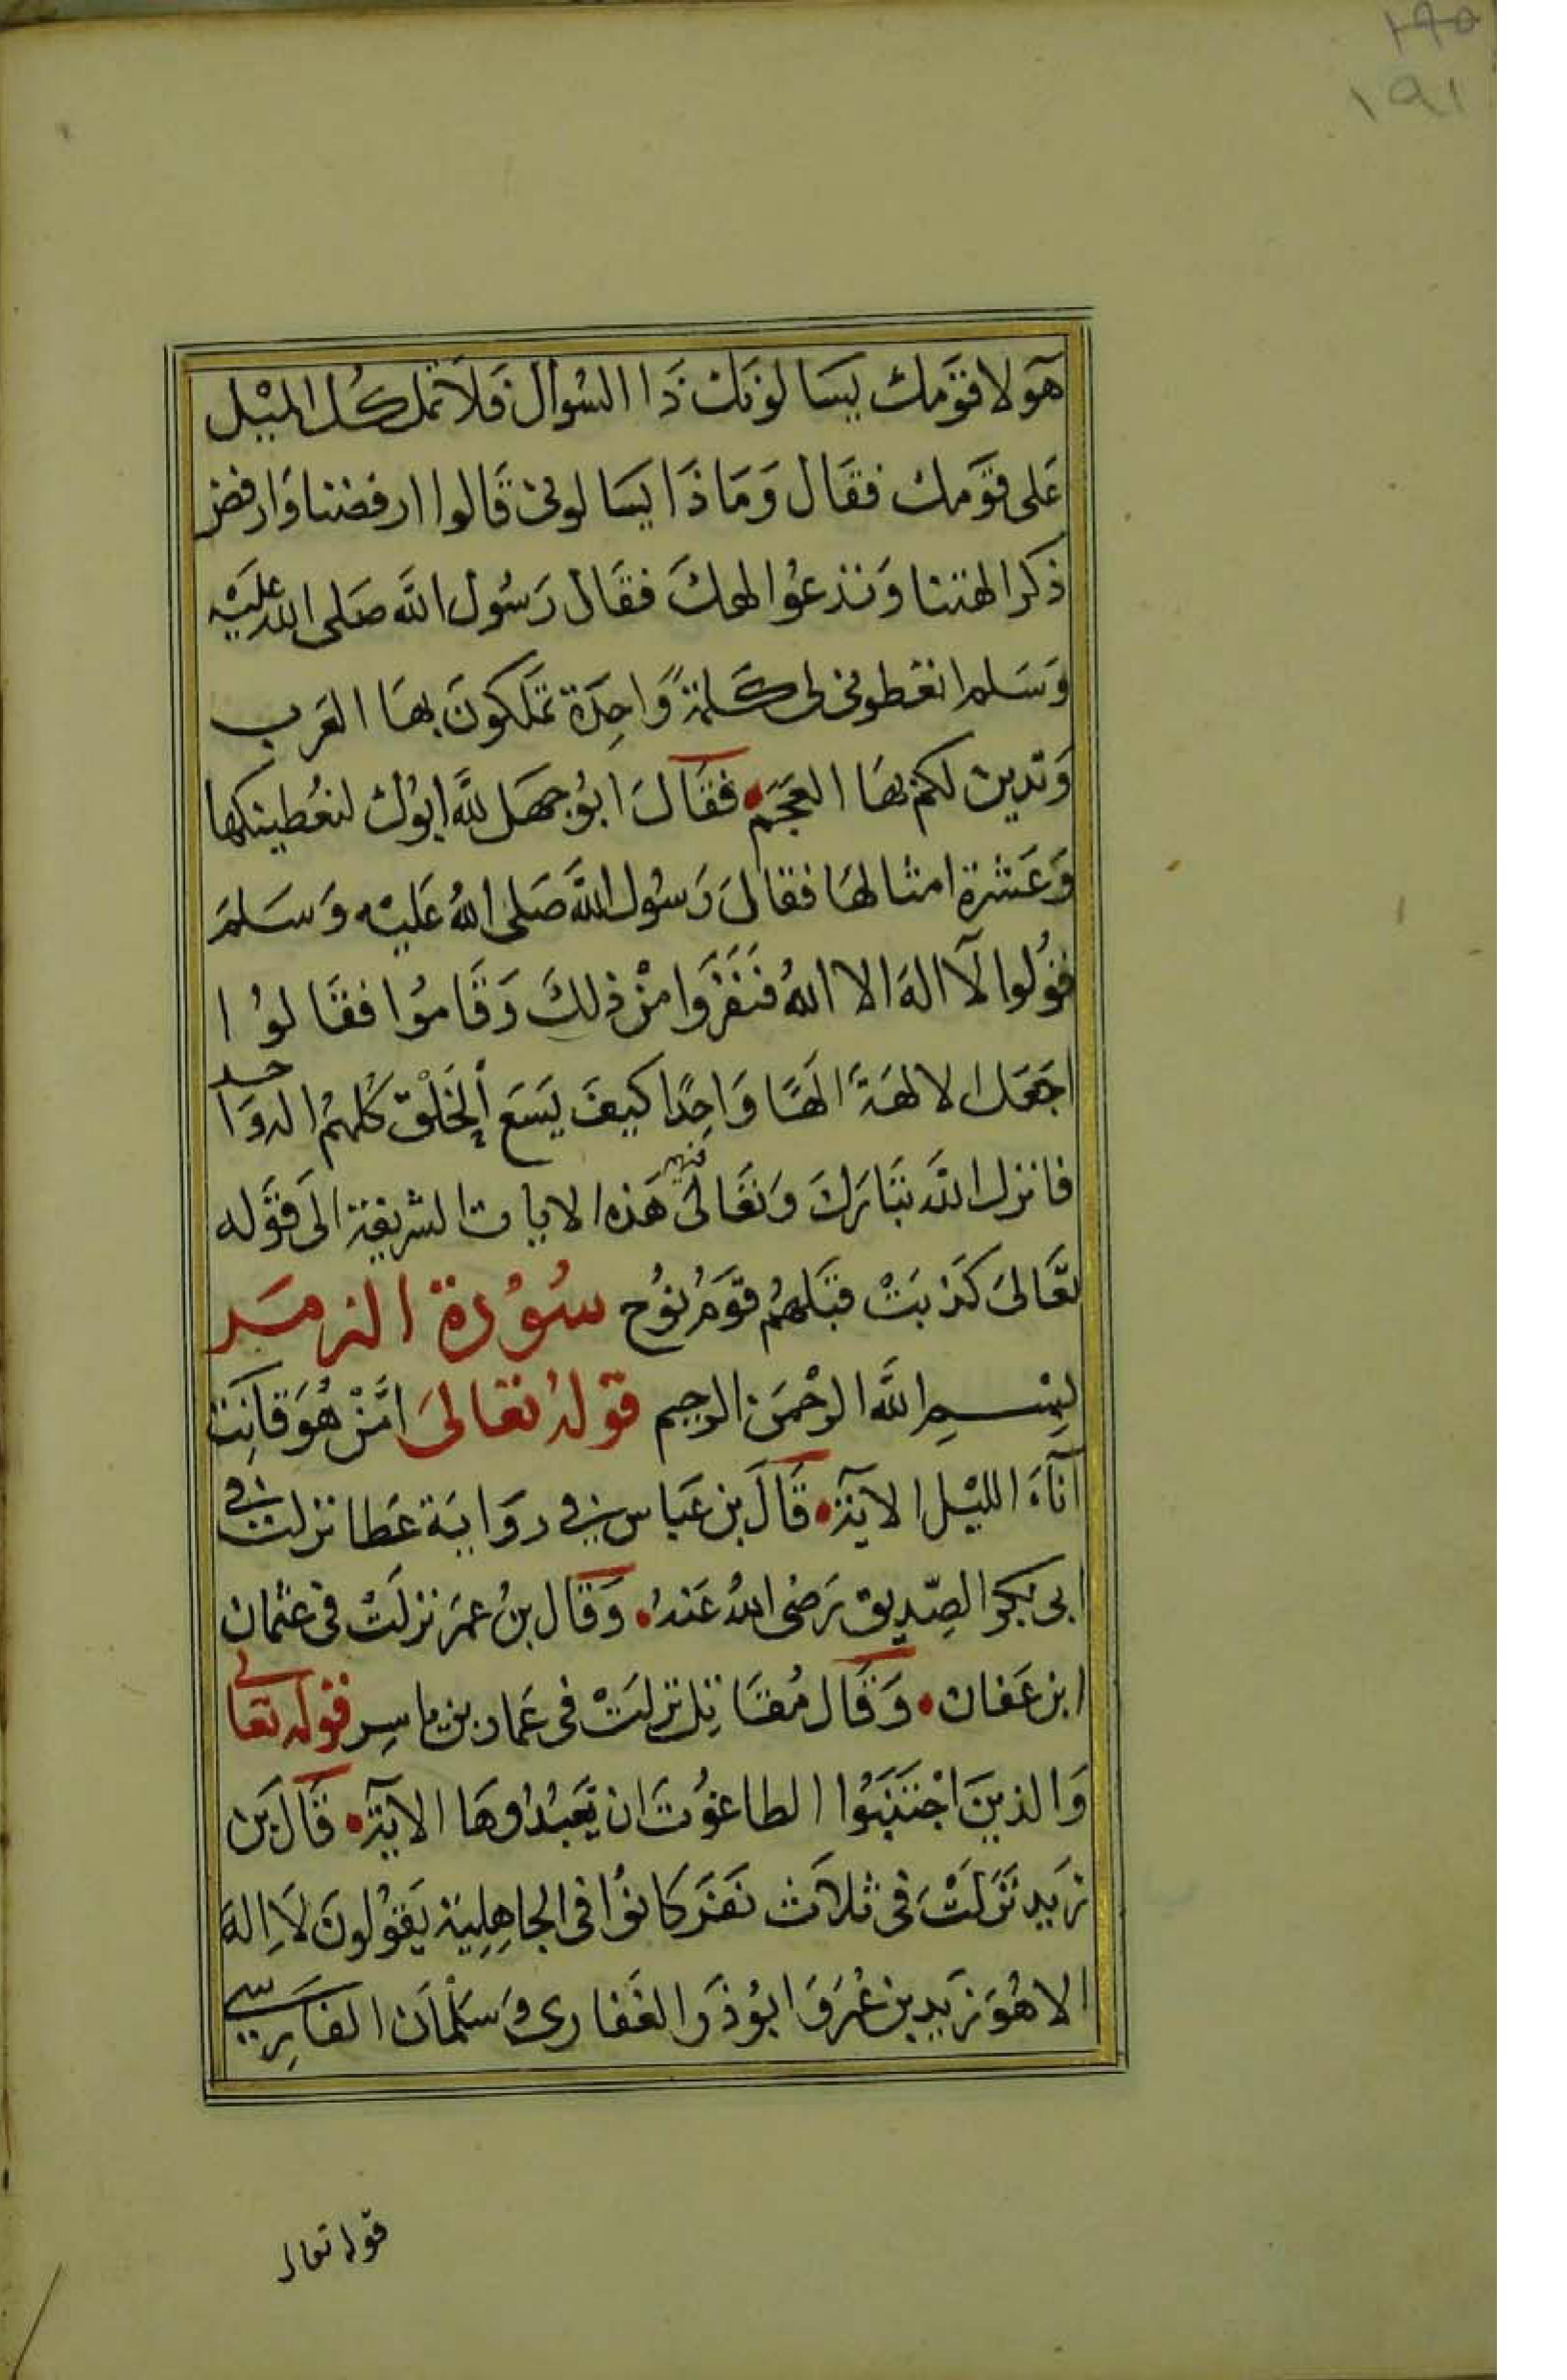 ١٩٥
١٩١
هَولا قَومك يسَالونك ذَا السُوال فَلا تمل كُل الميْل
عَلى قومك فقَال وَمَاذَا يسَالونى قَالوا ارفضنا وَارفض
ذكر الهتنا وَندعُوا لهك فقَال رَسُول الله صَلى الله عليْه
وَسَلم اتعطونى لى كَلمةً وَاحِدَة تمَلكونَ بهَا العَرب
وَتدين لكم بهَا العَجَم فقَالَ ابُو جهَل لله ابُوك لنعُطينكها
وَعَشرة امثالهَا فقالَ رَسُول الله صَلى اللهُ عَليْه وَسَلمَ
قوُلوا لَآ الهَ الا اللهُ فنَفَرَوا منْ ذلكَ وَقَامُوا فقَالوُا
اجَعَل الالهَةَ الهًا وَاحِدًا كيفَ يسَع الخَلْق كُلهُم اله وَاحد
فانزل الله تبَارَكَ وَتعَالىَ فيهم هَذه الايات الشريفة الى قَوله
تعَالىَ كَذبَتْ قبَلهُم قَومُ نوُح سُوُرة الزمَر
بِسْمِ الله الرحْمَن الرحيم قولهُ تعَالىَ امَّنْ هُوَ قانِت
آنآءَ الليْل الاية قَالَ بن عَباس في روَاية عَطا نزلت في
ابى بكر الصِّديق رَضى اللهُ عَنهُ وَقَال بنُ عمَر نزلَتْ فى عثمان
ابن عَفان وَقَال مُقَاتِل نزلَتْ فى عَمار بن ياسِر قوله تعَالى
وَالذينَ اجْتَنَبُوا الطاغوُتَ ان يَعبُدُوهَا الايَة قَالَ بَن
زَيد نزَلَتْ فى ثلاَث نَفَر كَانوُا فى الجاهِلِية يَقوُلونَ لاَ اِلهَ
الا هُوَ زَيد بن عُمَرَ وَابوُ ذَر الغَفارى وَسَلْمَان الفَارِسي
قوله تعالى